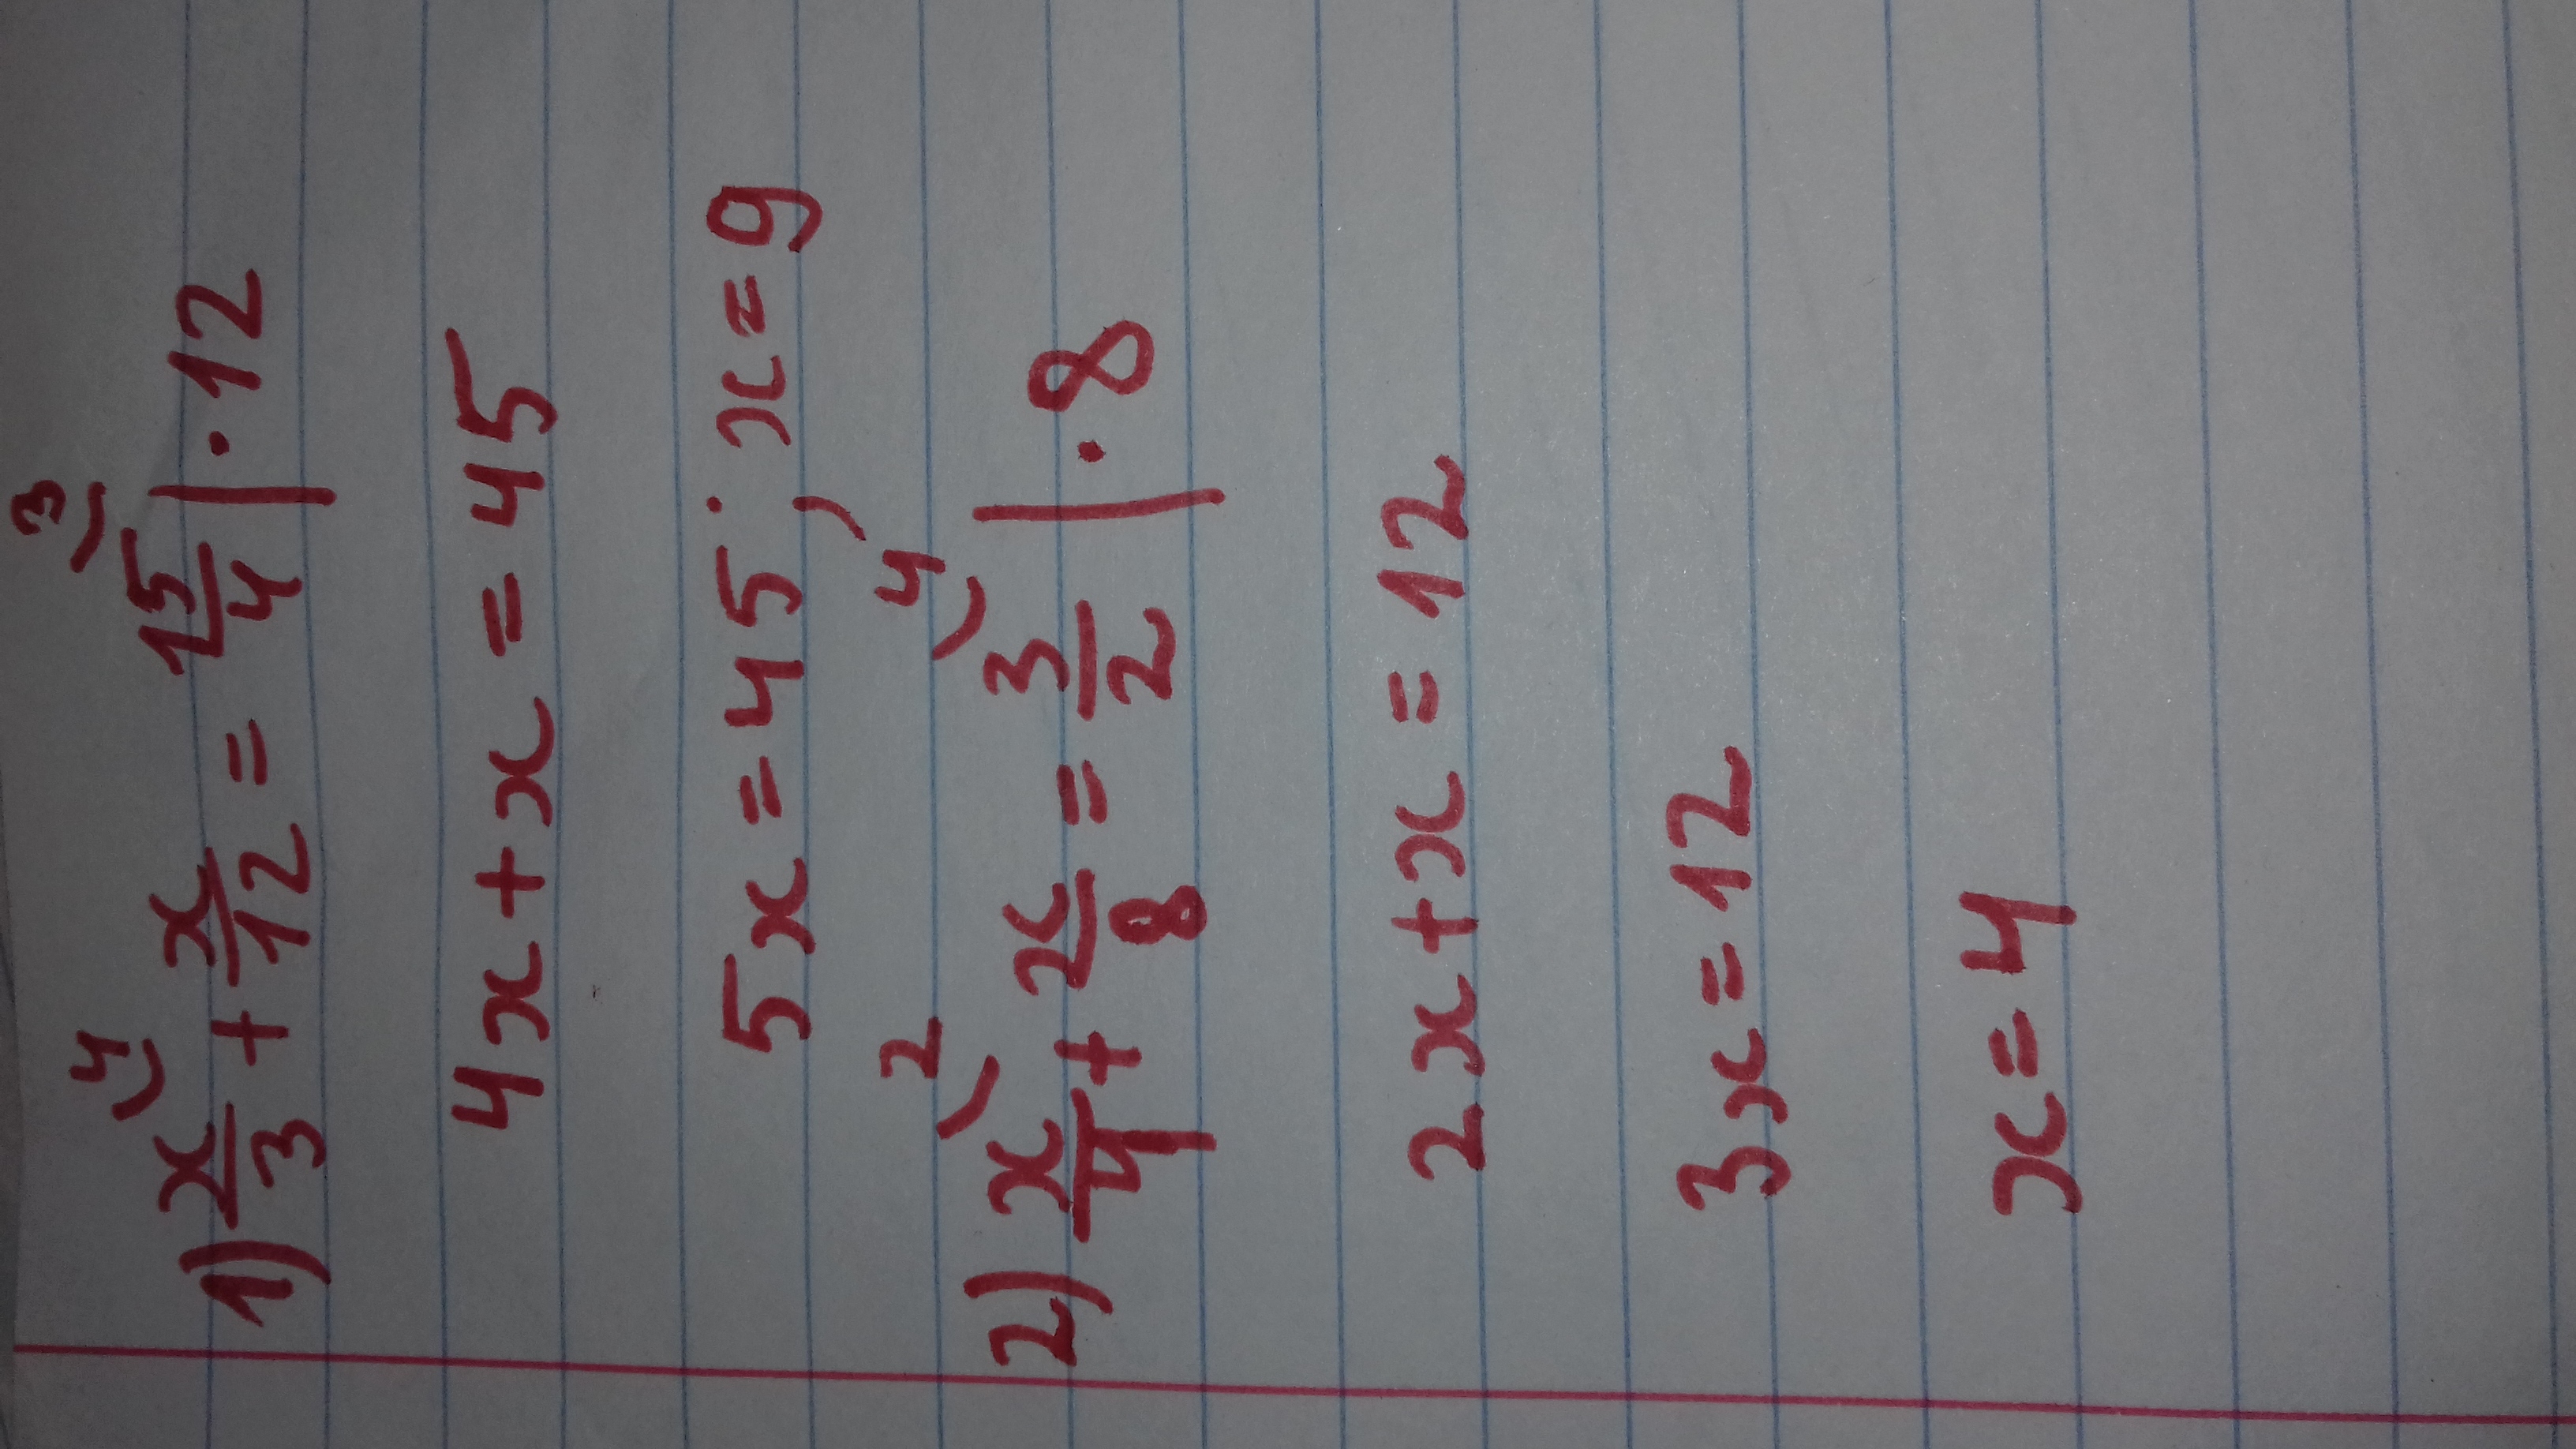 1) x/3 ⁽⁴ + x/12 = 15/4 ⁽³ | · 12
4x + x = 45
5x = 45; x = 9
2) x/4 ⁽² + x/8 = 3/2 ⁽⁴ | · 8
2x + x = 12
3x = 12
x = 4